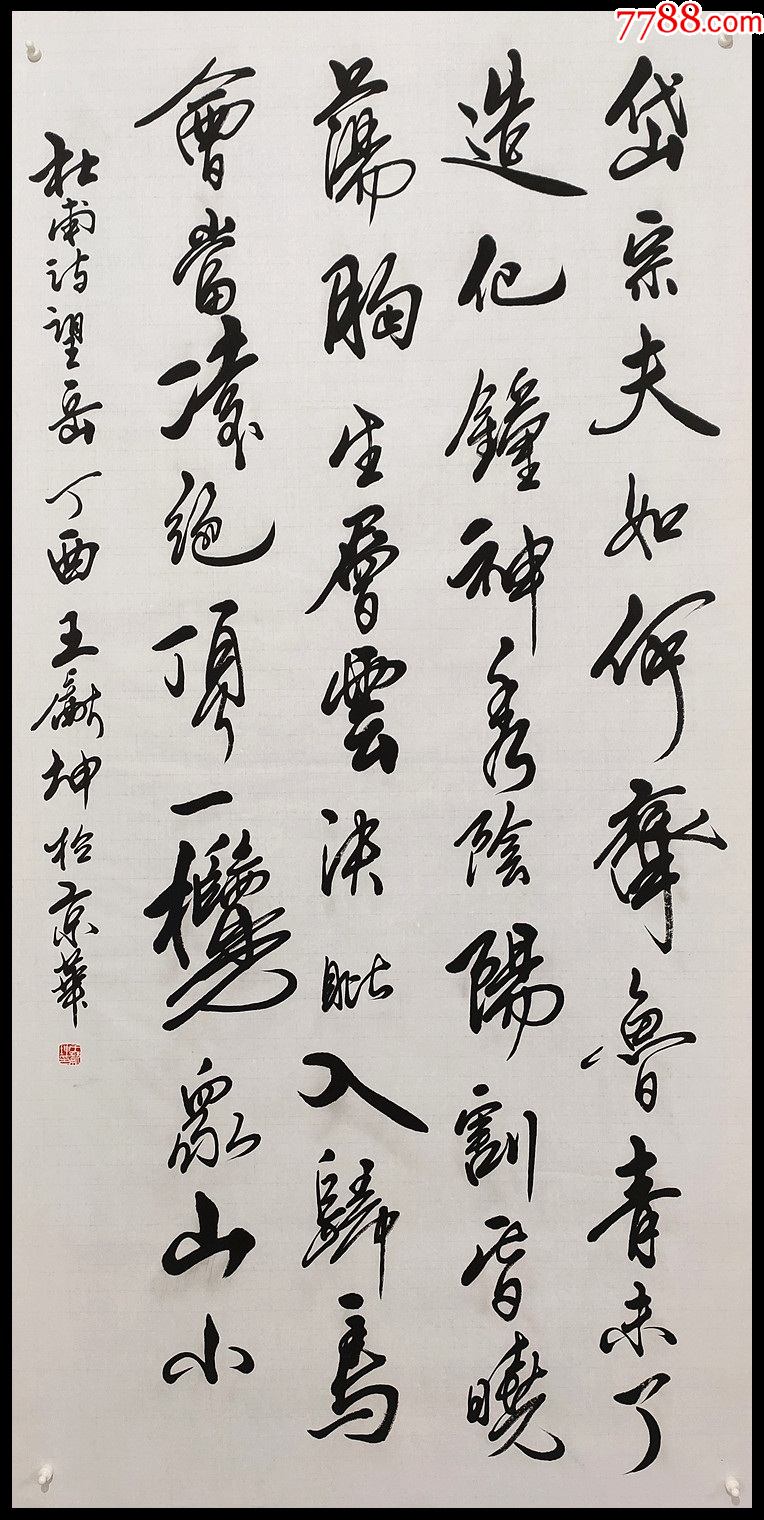 7788.com
岱宗夫如何齊魯青未了
造化鐘神秀陰陽割昏曉
蕩胸生層雲決眦入歸鳥
會當凌絕頂一覽衆山小
杜甫詩望岳丁酉王獻坤於京華